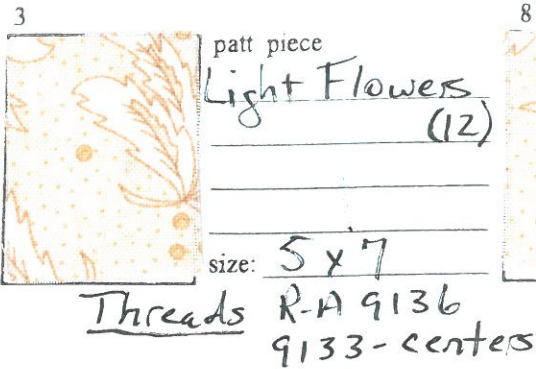 3
8
patt piece
Light Flowers
(12)
size: 5 x 7
Threads R-A 9136
9133-centers